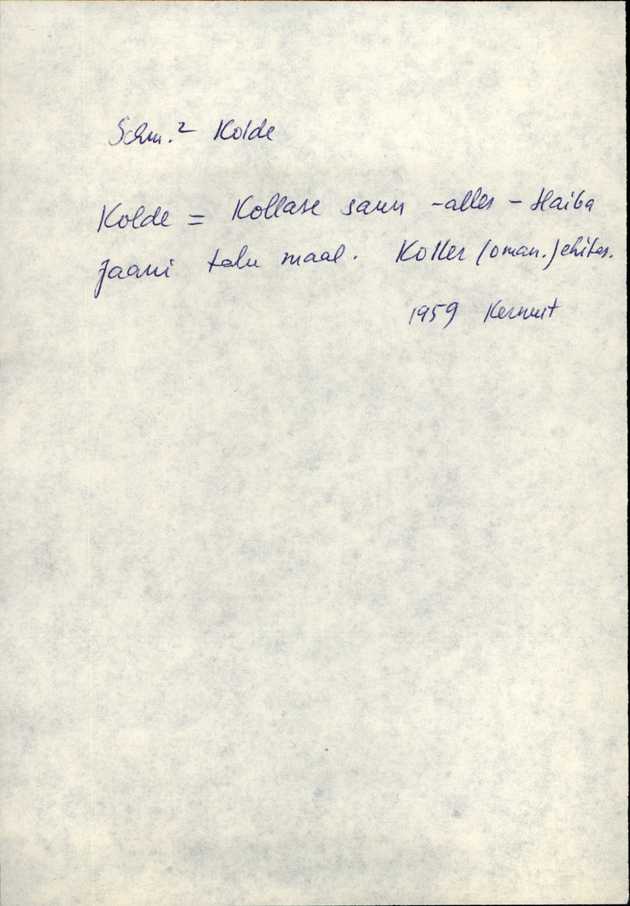 Schm.² Kolde
Kolde = Kollase saun - alles - Haiba
Jaani talu maal. Koller (oman.) ehitas.
1959 Kernust